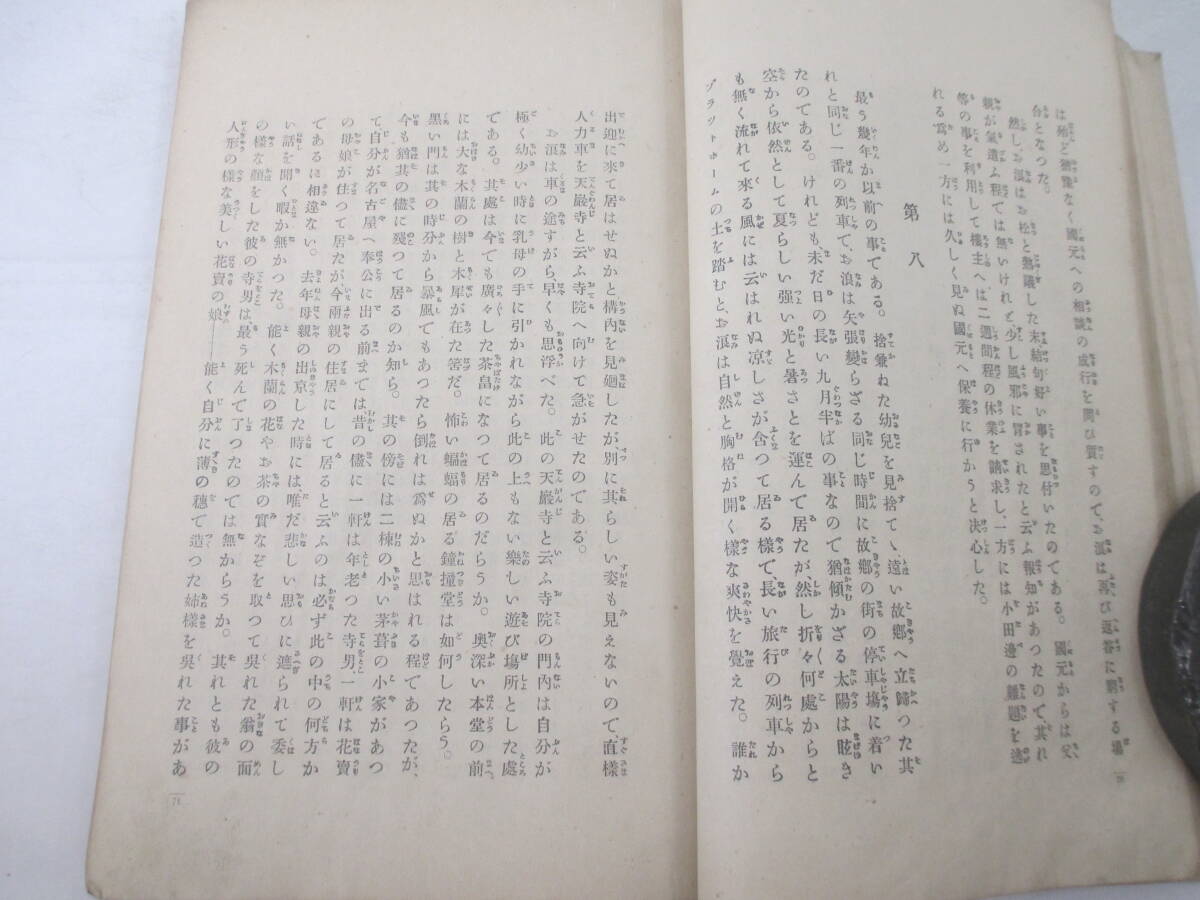 は殆ど猶豫なく國元への相談の成行を問ひ質すので、お浪は再び返答に窮する場
台となつた。
然しお浪はお松と熟議した末、結句好い事を思付いたのである。國元からは父
親が氣遣ふ程では無いけれど少し風邪に冒されたと云ふ報知があつたので、其れ
等の事を利用して樓主へは二週間程の休業を請求し、一方には小田邊の難題を逃
れる爲め一方には久しく見ぬ國元へ保養に行かうと決心した。
第八
最う幾年か以前の事である。捨兼ねた幼兒を見捨てゝ、遠い故郷へ立歸つた其
れと同じ一番の列車で、お浪は矢張變らざる同じ時間に故郷の街の停車塲に着い
たのである。けれども、未だ日の長い九月半ばの事なので猶傾かざる太陽は眩き
空から依然として夏らしい强い光と暑さとを運んで居たが、然し折々何處からと
も無く流れて來る風には云はれぬ凉しさが含つて居る樣で、長い旅行の列車から
プラットホームの土を踏むと、お浪は自然と胸格が開く樣な爽快を覺えた。誰か
70
出迎に來て居はせぬかと構內を見廻したが別に其らしい姿も見えないので、直樣
人力車を天巖寺と云ふ寺院へ向けて急がせたのである。
お浪は車の途すがら早くも思浮べた。此の天巖寺と云ふ寺院の門內は自分が
極く幼少い時に乳母の手に引かれながら此の上もない樂しい遊び塲所とした處
である。其處は今でも廣々した茶畠になつて居るのだらうか。奧深い本堂の前
には大な木蘭の樹と木犀が在た筈だ。怖い蝙蝠の居る鐘撞堂は如何したらう。
黑い門は其の時分から暴風でもあつたら倒れは爲ぬかと思はれる程であつたが、
今も猶其の儘に殘つて居るのか知ら。其の傍には二棟の小い茅葺の小家があつ
て、自分が名古屋へ奉公に出る前までは昔の儘に一軒は年老つた寺男、一軒は花賣
の母娘が住つて居たが、今兩親の住居にして居ると云ふのは必ず此の中の何方か
であるに相違ない。去年母親の出京した時には唯だ悲しい思ひに遮られて委し
い話を聞く暇か無かつた。能く木蘭の花やお茶の實なぞを取つて吳れた翁の面
の樣な顏をした彼の寺男は最う死んで了つたのでは無からうか。其れとも彼の
人形の樣な美しい花賣の娘――能く自分に薄の穗で造つた姉樣を吳れた事があ
71